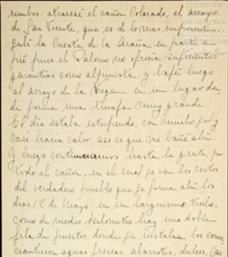 rumbos atravesé el cañón Colorado, el arroyo
de San Vicente, que es de lo más imponente.
Subí la Cuesta de la Araña en parte a
pié pues el Palomo no ofrecía suficientes
garantías como alpinista, y bajé luego
al arroyo de la Virgen en un lugar don
de forma una tinaja muy grande.
El día estaba estupendo, con mucho sol y
casi hacía calor, así es que me bañé ahí
y luego continuamos hasta la gruta, por
todo el cañón, en el cual se ven los restos
del verdadero pueblo que se forma ahí los
días 1º de Mayo, en un larguísimo trecho,
como de medio kilómetro hay una doble
fila de puestos, donde se instalan los comer
ciantes con aguas frescas, abarrotes, dulces,